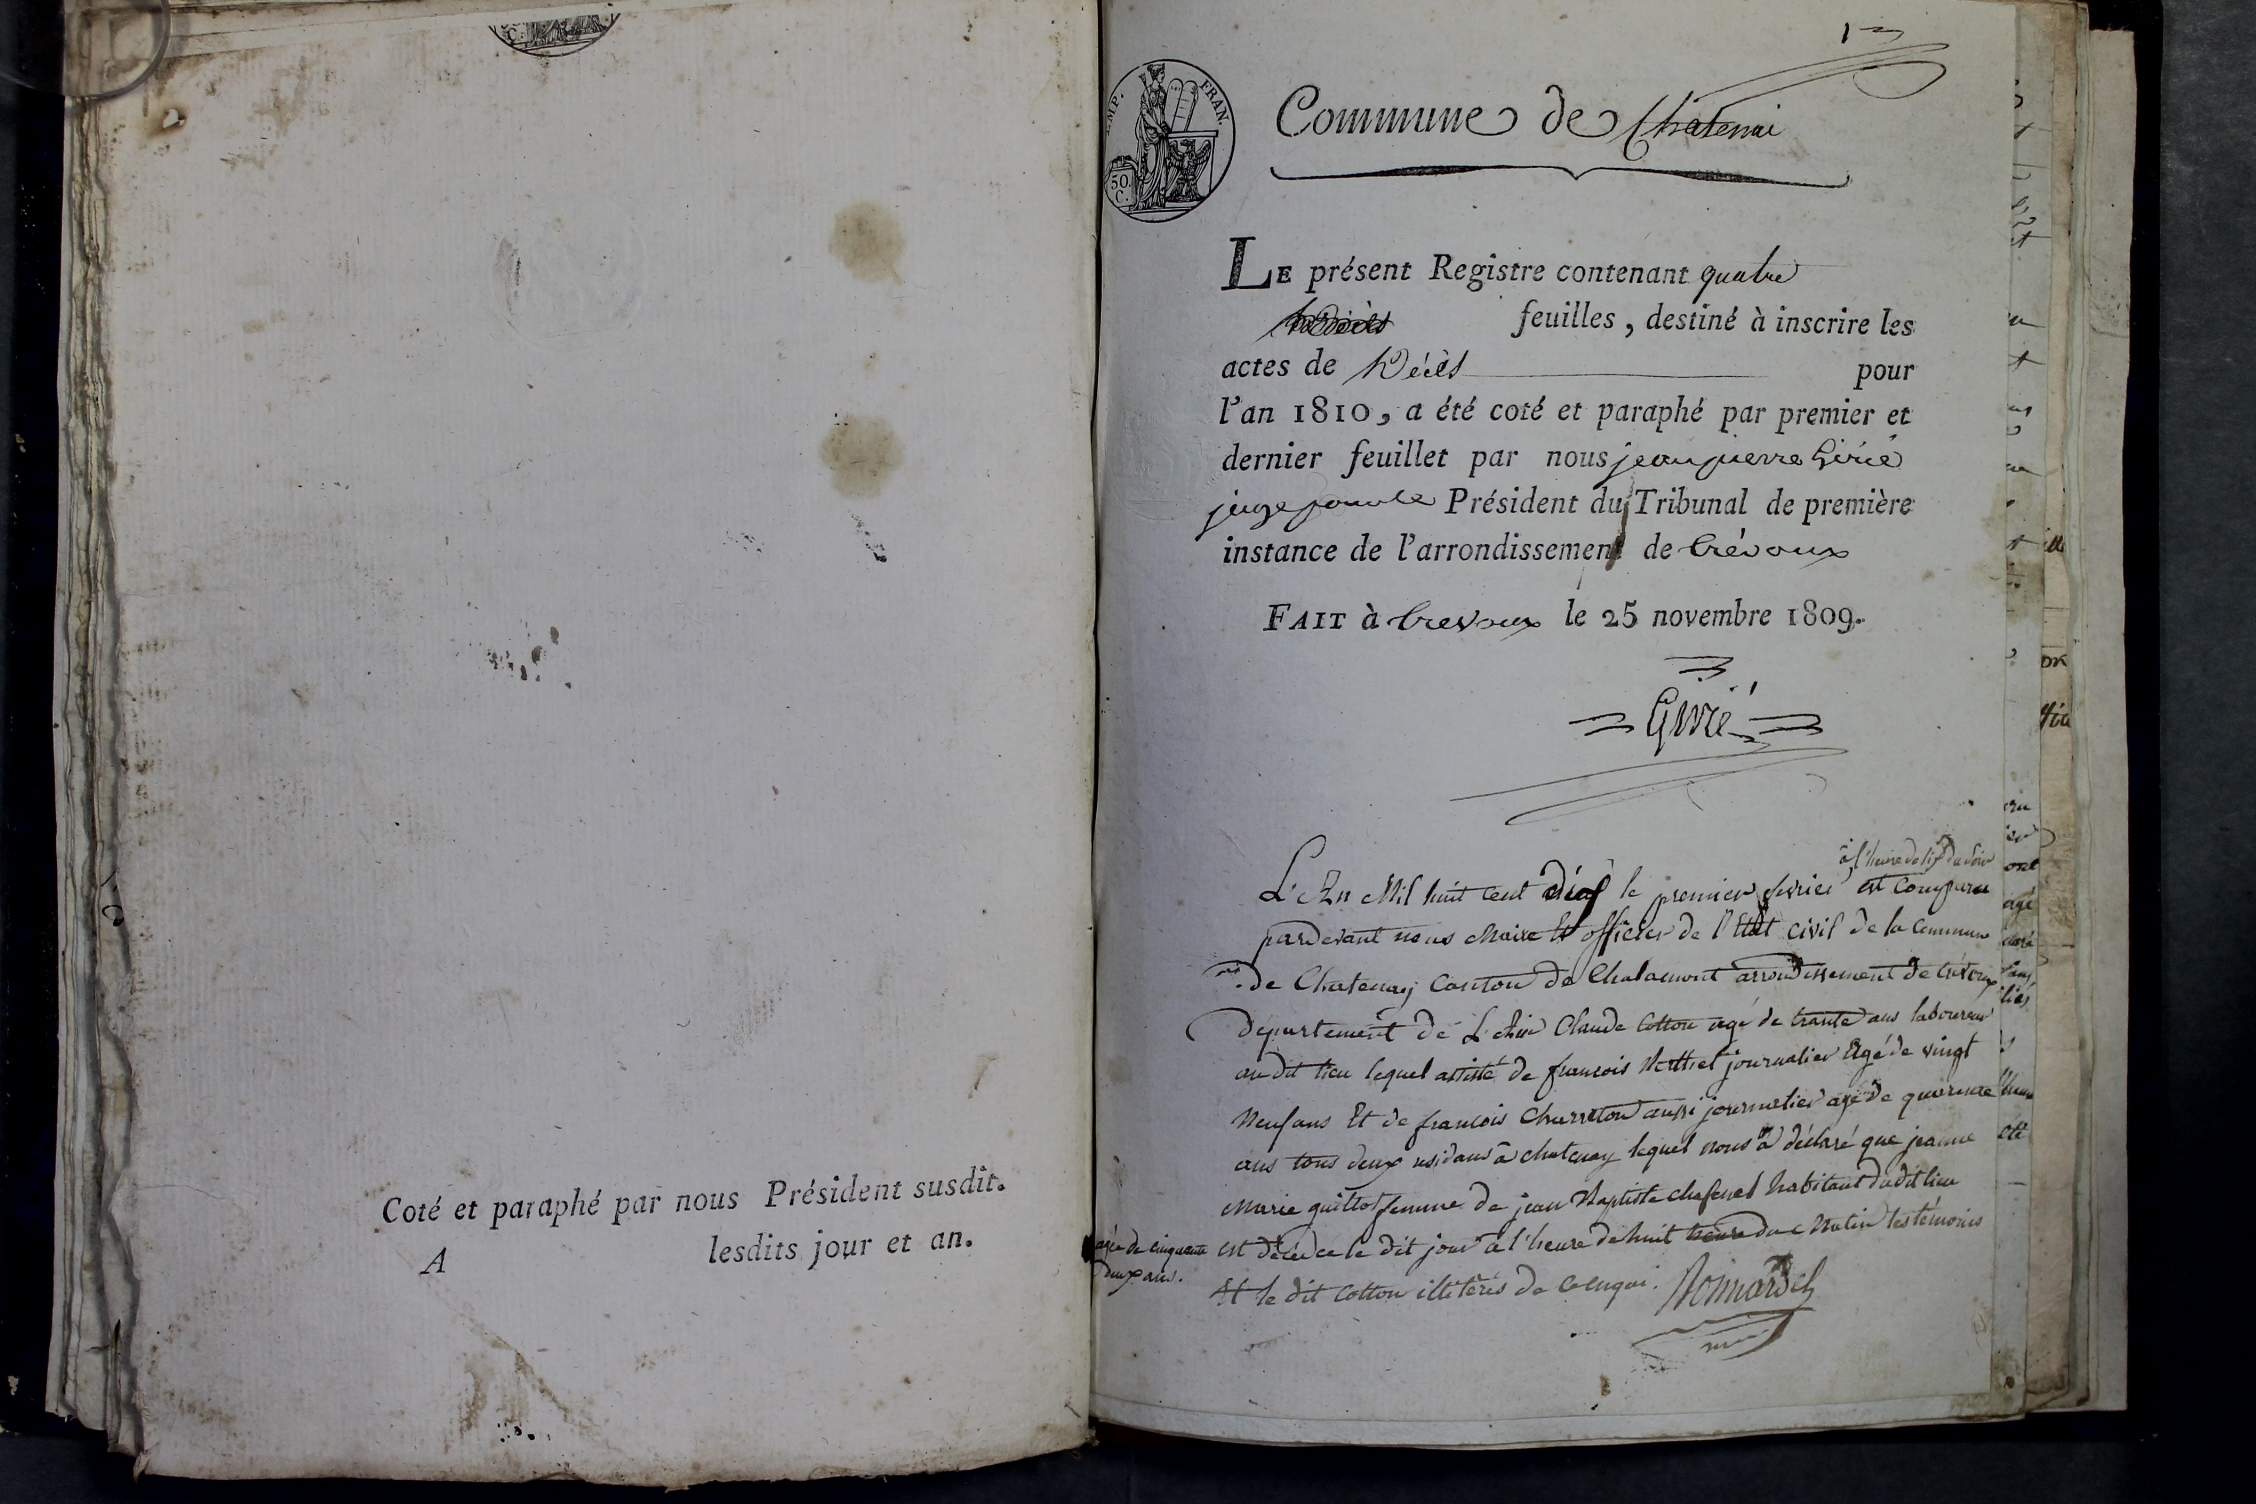 C.
Coté et paraphé par nous Président susdit.
A lesdits jour et an.
1er
EMP. FRAN.
50 C.
Commune de Chatenai
LE présent Registre contenant quatre
feuilles, destiné à inscrire les
actes de Décès pour
l'an 1810, a été coté et paraphé par premier et
dernier feuillet par nous jean pierre Girié
juge pour le Président du Tribunal de première
instance de l'arrondissement de trévoux
FAIT à trevoux le 25 novembre 1809.
Girié
à l'heure de six du soir
L'An Mil huit cent dix le premier fevrier est comparu
pardevant nous Maire et officier de l'Etat civil de la Commune
de Chatenay Canton de Chalamont arrondissement de trévoux
département de L'Ain Claude Cotton agé de trante ans laboureur
au dit lieu lequel assisté de francois journalier Agé de vingt
neuf ans Et de francois Charreton aussi journalier agé de quarente
ans tous deux residans à chatenay lequel nous a déclaré que jeanne
Marie guillot femme de jean Baptiste habitant dudit lieu
agée de cinquante est décédée le dit jour à l'heure de huit heure du Matin les témoins
deux ans.
Et le dit Cotton illitérés de ce enquis.